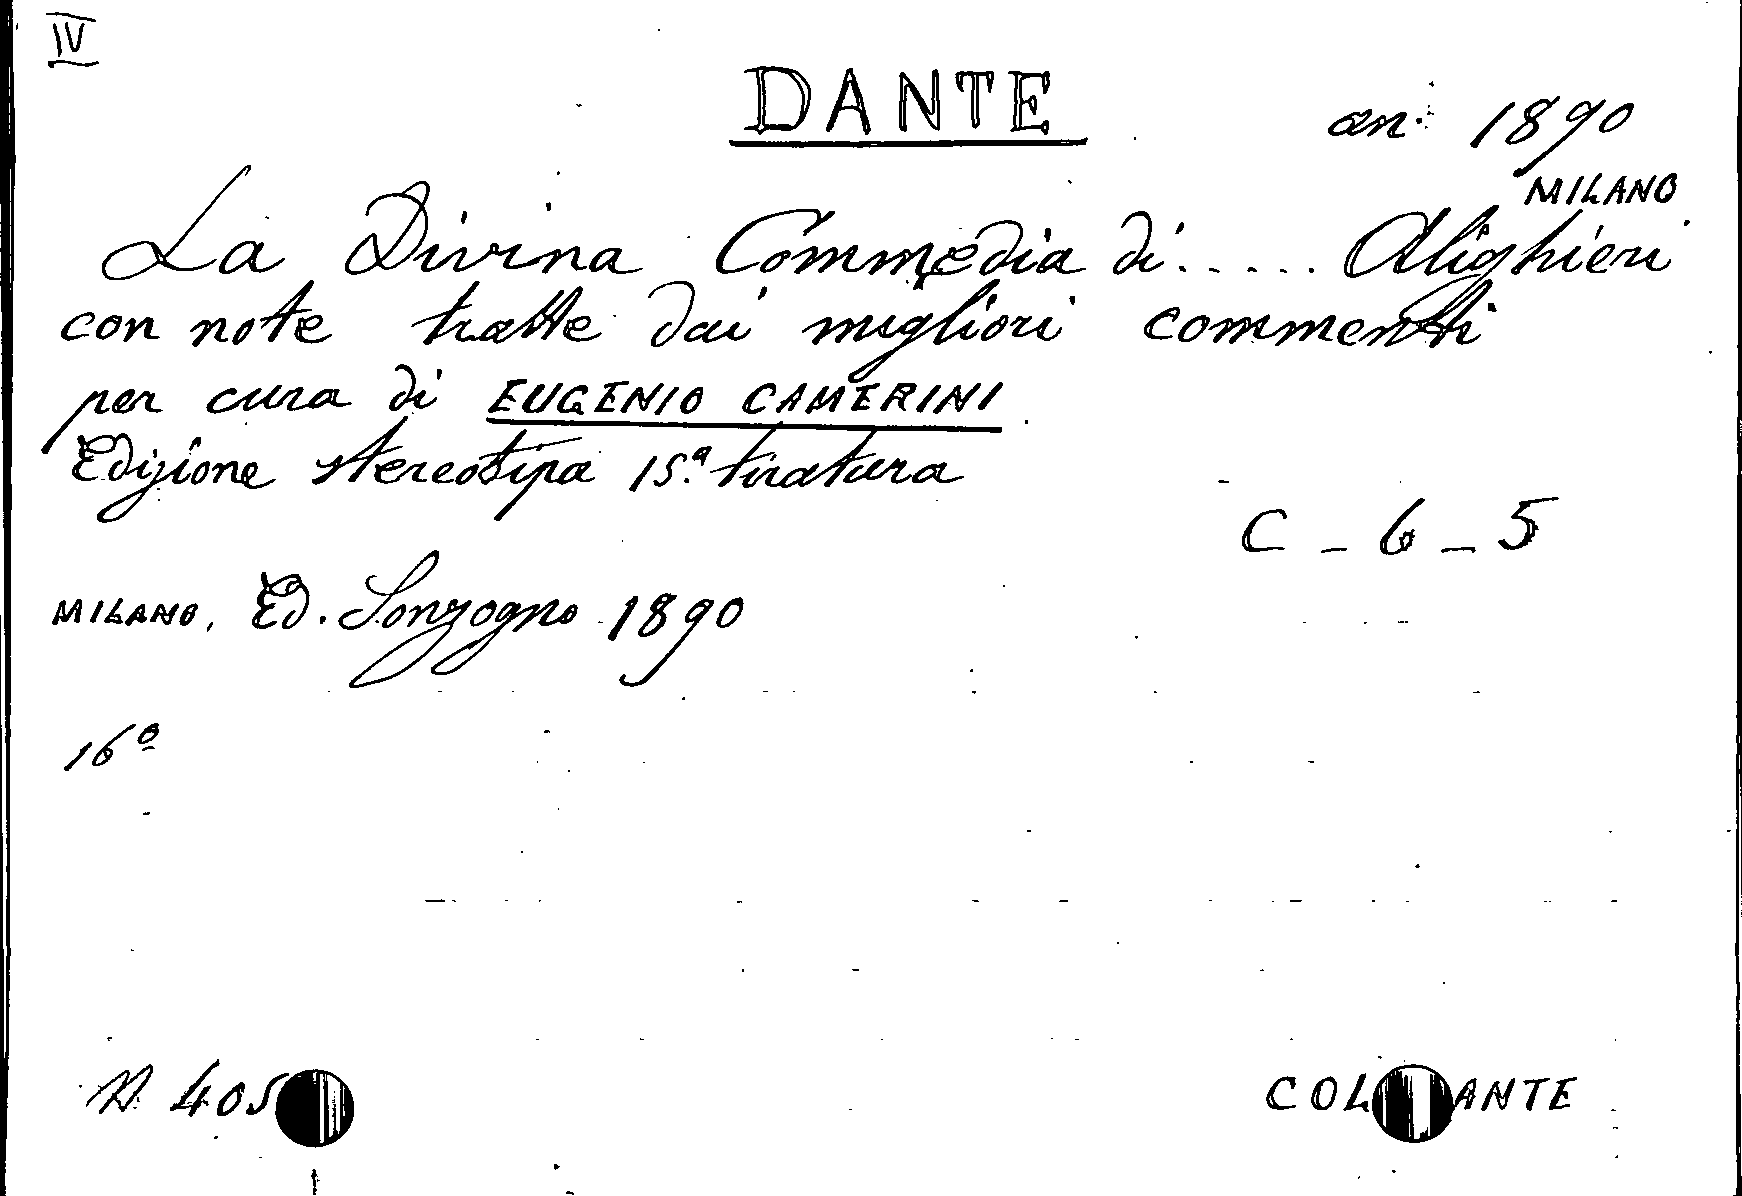 IV
DANTE
an: 1890
MILANO
La Divina Commedia di..... Alighieri
con note tratte dai migliori commenti
per cura di EUGENIO CAMERINI
Edizione stereotipa 15.ª tiratura
C - 6 - 5
MILANO, Ed. Sonzogno 1890
16º
N 405
COL ANTE